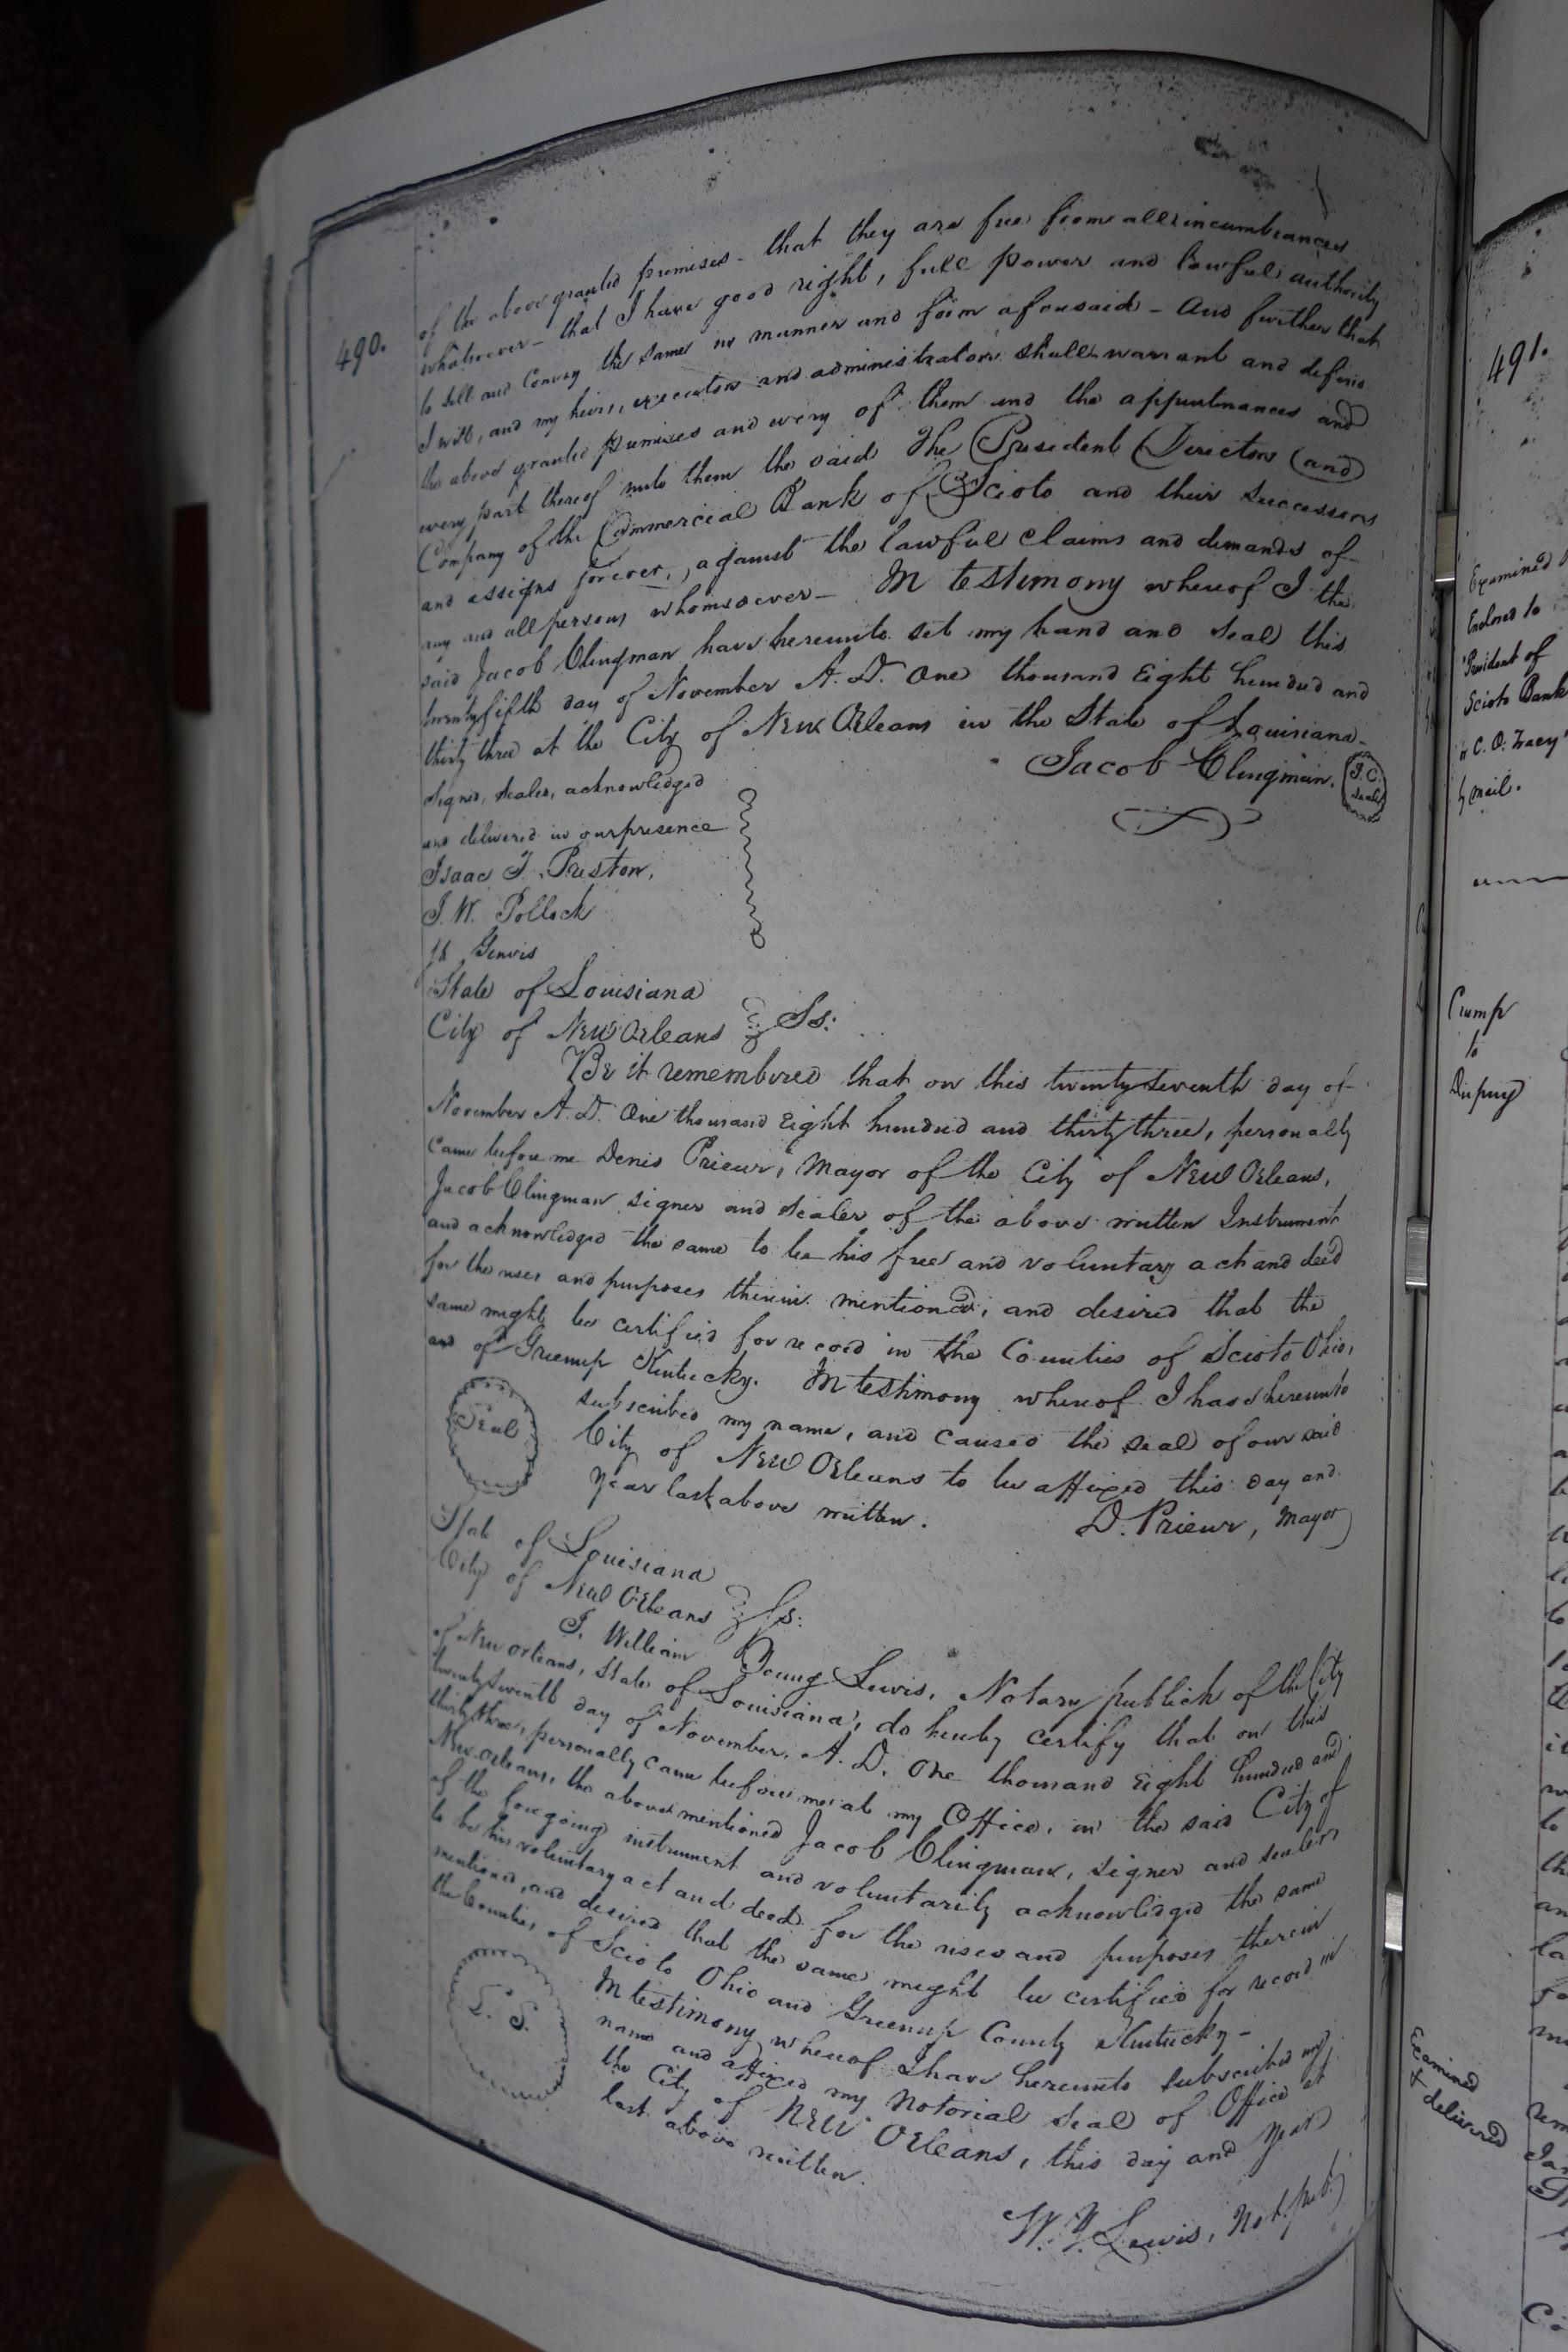 490.
of the above granted premises - that they are free from all incumbrances
whatsoever - that I have good right, full power and lawful authority
to sell and Convey the same in manner and form aforesaid - And further that
I will, and my heirs, executors and administrators shall warrant and defend
the above granted premises and every of them and the appurtinances and
every part thereof unto them the said The President Directors (and)
Company of the Commercial Bank of Scioto and their successors
and assigns forever, against the lawful claims and demands of
any and all persons whomsoever - In testimony whereof I the
said Jacob Clingman have hereunto set my hand and seal this
twentyfifth day of November A. D. One thousand Eight hundred and
thirty three at the City of New Orleans in the State of Louisiana -
Jacob Clingman. J. C. Seal
Signed, Sealed, acknowledged
and delivered in our presence
Isaac T. Preston,
J. W. Pollock
Genois
State of Louisiana
City of New Orleans Ss:
Be it remembered that on this twenty seventh day of
November A. D. One thousand Eight hundred and thirty three, personally
came before me Denis Prieur, Mayor of the City of New Orleans,
Jacob Clingman signer and sealer of the above written Instrument
and acknowledged the same to be his free and voluntary act and deed
for the uses and purposes therein mentioned, and desired that the
same might be certified for record in the Counties of Scioto Ohio,
and of Greenup Kentucky. In testimony whereof I have hereunto
subscribed my name, and caused the seal of our said
City of New Orleans to be affixed this day and
Year last above written.
Seal
D. Prieur, Mayor
State of Louisiana
City of New Orleans Ss:
I. William Young Lewis, Notary publick of the City
of New Orleans, State of Louisiana, do hereby certify that on this
twenty seventh day of November, A. D. One thousand Eight hundred and
thirty three, personally came before me at my Office, in the said City of
New Orleans, the above mentioned Jacob Clingman, signer and sealer
of the foregoing instrument and voluntarily acknowledged the same
to be his voluntary act and deed for the uses and purposes therein
mentioned, and desired that the same might be certified for record in
the Counties of Scioto Ohio and Greenup County Kentucky -
In testimony whereof I have hereunto subscribed my
name and affixed my notorial seal of Office at
the City of New Orleans, this day and Year
last above written.
L. S.
W. Y. Lewis, Not. pub.
491.
Examined
Endorsed to
President of
Scioto Bank
C. O. Tracy
by mail.
Crump
to
Dupuy
Examined
& delivered